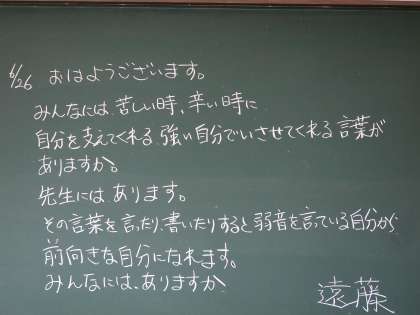 6/26 おはようございます。
みんなには、苦しい時、辛い時に
自分を支えてくれる、強い自分でいさせてくれる言葉が
ありますか。
先生には、あります。
その言葉を言ったり、書いたりすると弱音を言っている自分から
前向きな自分になれます。
みんなには、ありますか
遠藤